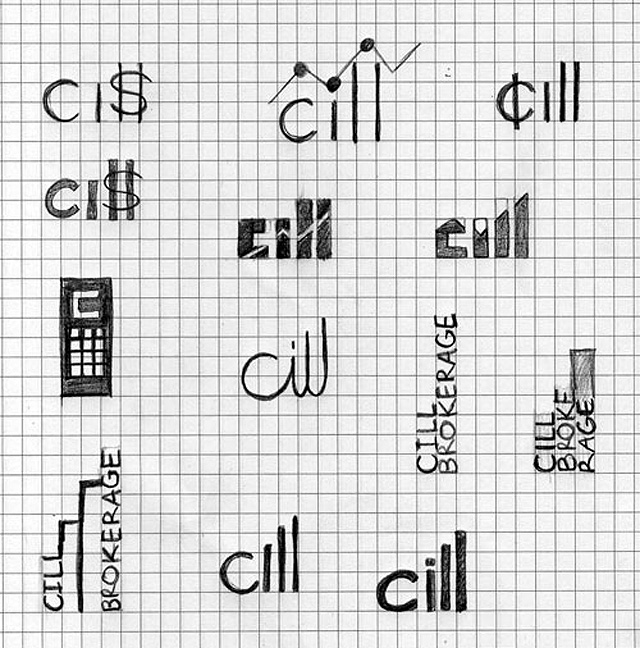 CI$
cill
¢ill
CI$
cill
cill
C
cill
CILL
BROKERAGE
CILL
BROKE
RAGE
CILL
BROKERAGE
cıll
cill